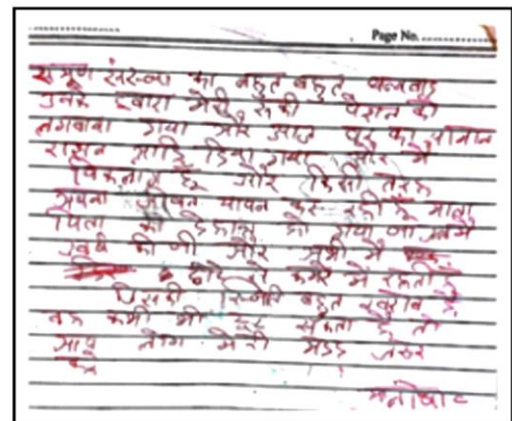 Page No. ..............
संस्था का बहुत बहुत धन्यवाद
द्वारा मेरी रुकी पेंशन को
लगवाया गया और आज घर का सामान
राशन आदि दिया गया और मैं
विकलांग हूँ और किसी तरह
अपना जीवन यापन कर रही हूँ माता
पिता का देहान्त हो गया
और अभी मैं
छोटे से कमरे में रहती हूँ
जिसकी स्थिति बहुत खराब है
वह कभी भी टूट सकता है तो
आप लोग मेरी मदद जरूर
करे